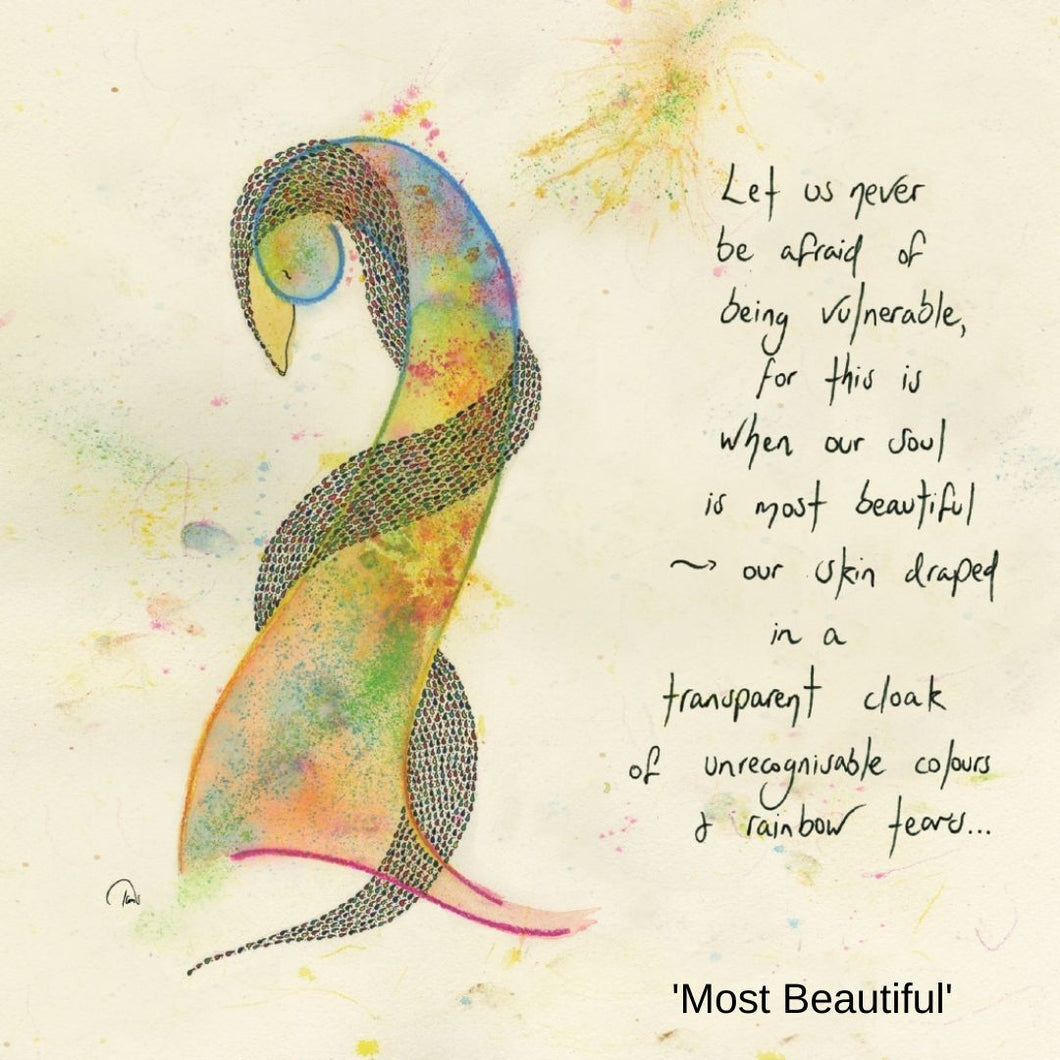 Let us never
be afraid of
being vulnerable,
for this is
when our soul
is most beautiful
~> our skin draped
in a
transparent cloak
of unrecognisable colours
& rainbow tears...
'Most Beautiful'